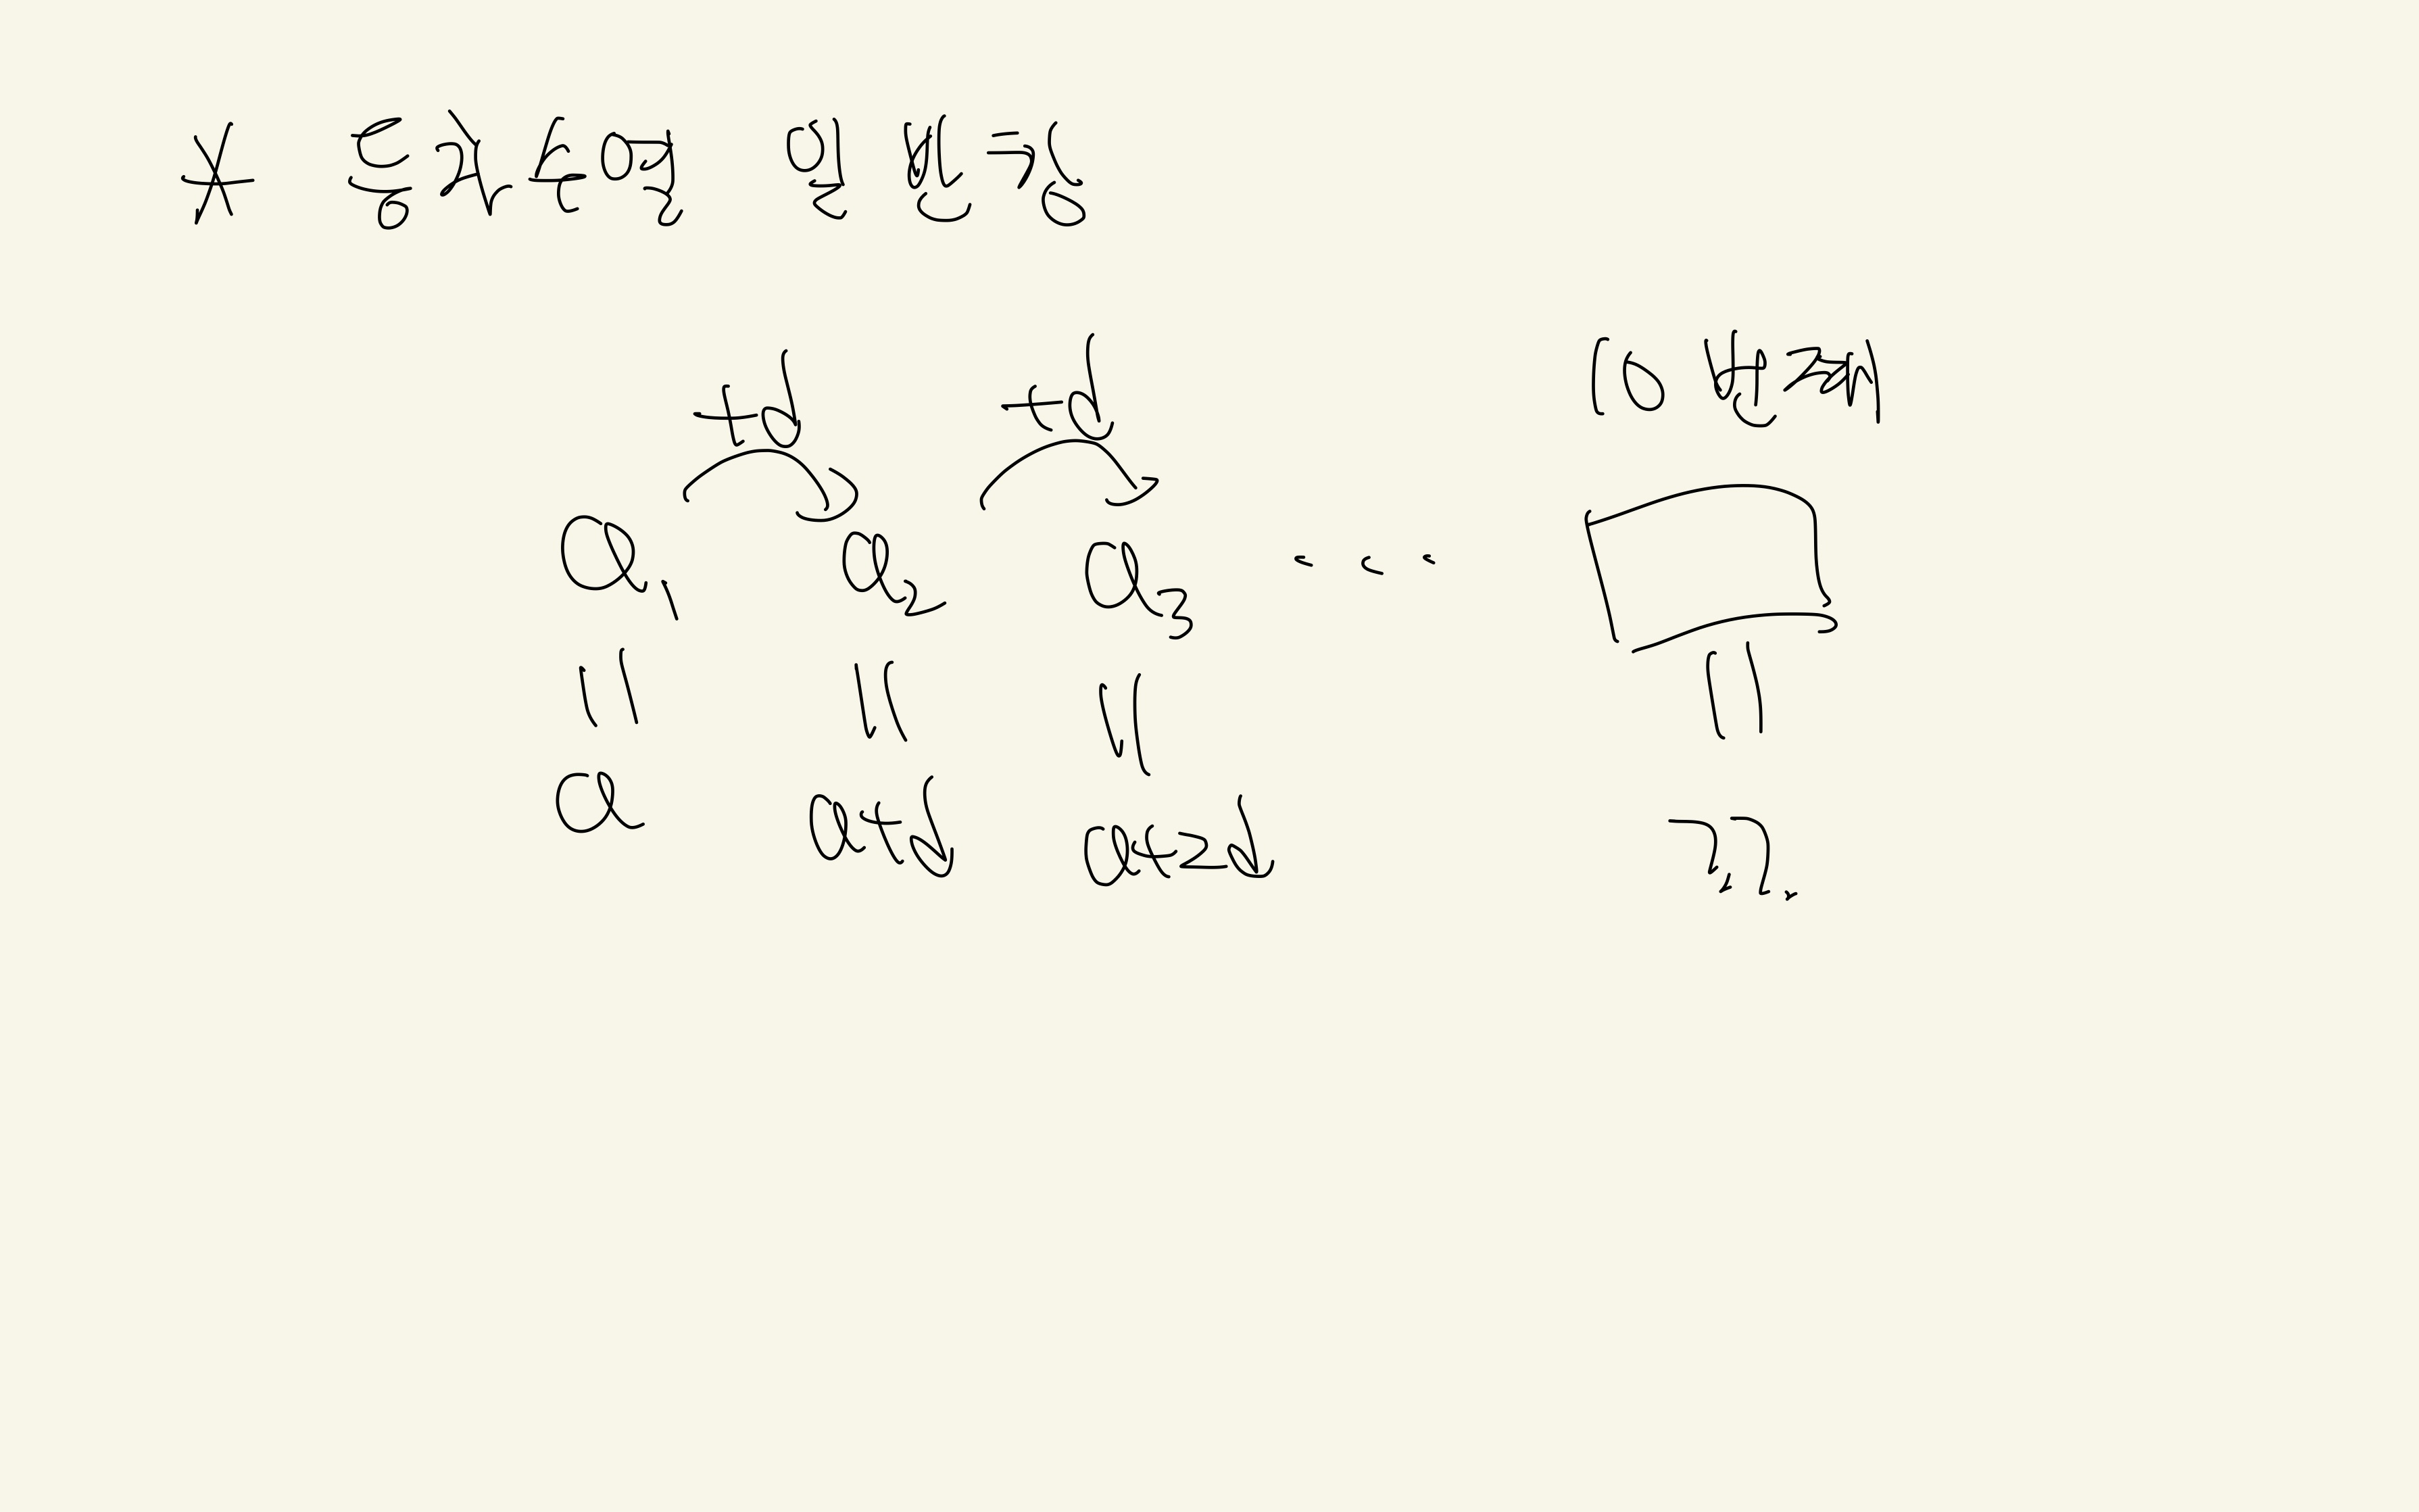 * 등차수열 일반항
+d +d 10번째
a₁ a₂ a₃ ...
|| || || ||
a a+d a+2d ??